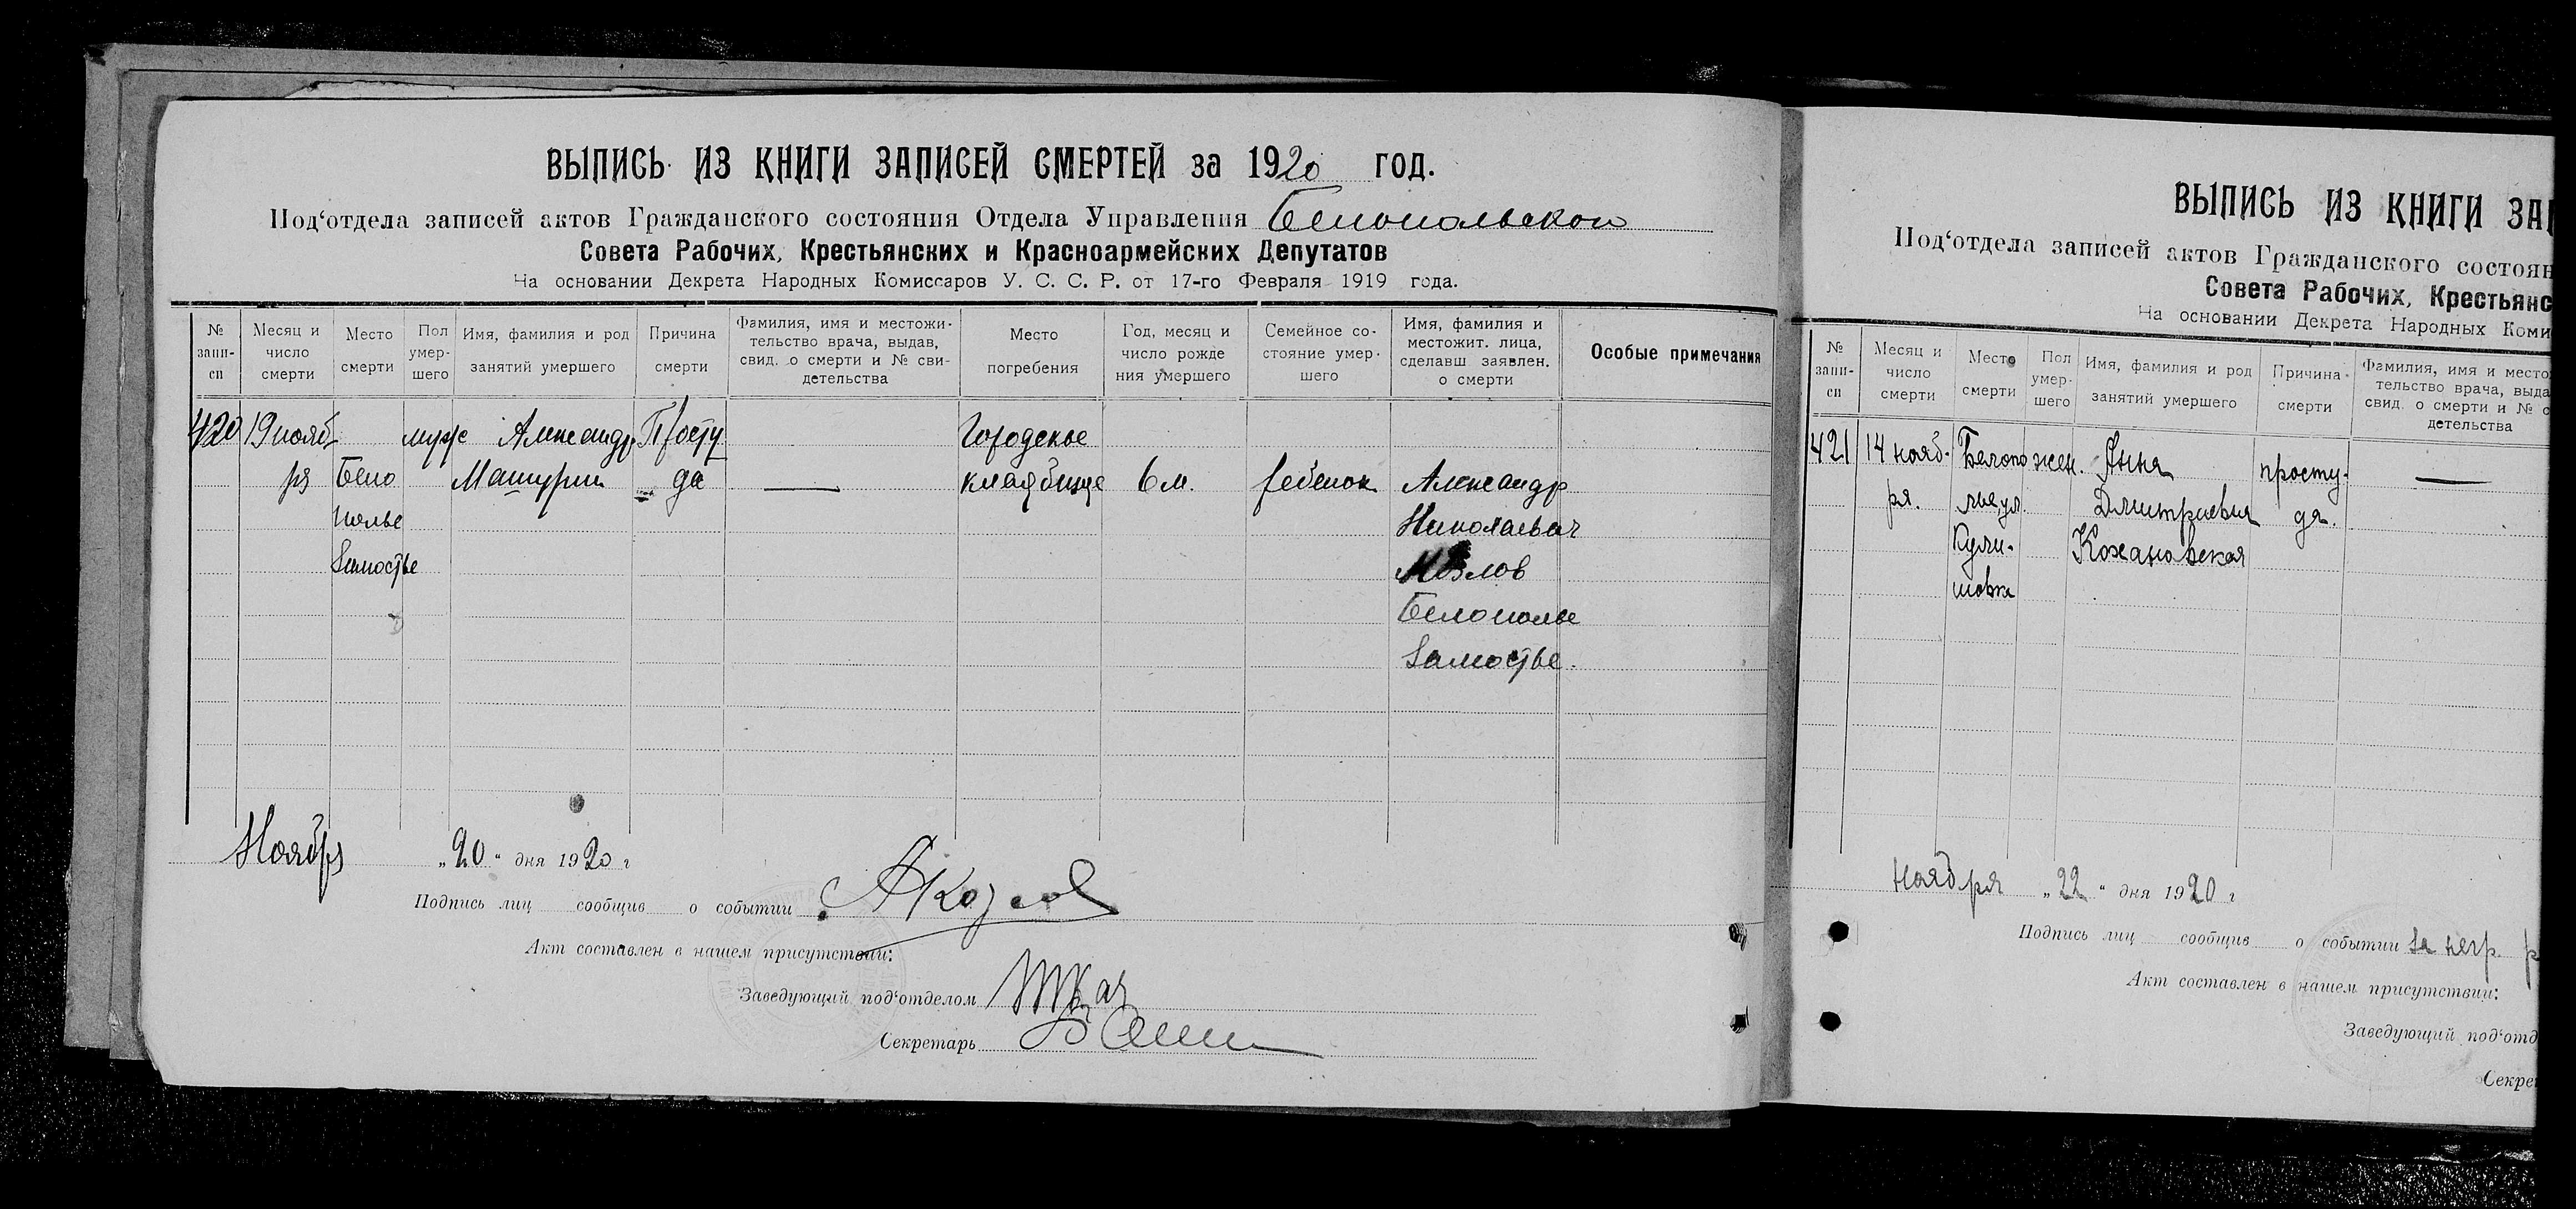 ВЫПИСЬ ИЗ КНИГИ ЗАПИСЕЙ СМЕРТЕЙ за 1920 ГОД.
Под‘отдела записей актов Гражданского состояния Отдела Управления Белопольского
Совета Рабочих, Крестьянских и Красноармейских Депутатов
На основании Декрета Народных Комиссаров У. С. С. Р. от 17-го Февраля 1919 года.
№ запи-
си
Месяц и
число
смерти
Место
смерти
Пол
умер-
шего
Имя, фамилия и род
занятий умершего
Причина
смерти
Фамилия, имя и местожи-
тельство врача, выдав,
свид. о смерти и № сви-
детельства
Место
погребения
Год, месяц и
число рожде
ния умершего
Семейное со-
стояние умер-
шего
Имя, фамилия и
местожит. лица,
сделавш заявлен.
о смерти
Особые примечания
420
19 нояб
ря
Бело
полье
Замостье
муж
Александр
Машурин
Просту
да
Городское
кладбище
6 м.
ребенок
Александр
Николаевич
Белополье
Замостье.
Ноября „20“ дня 1920 г
Подпись лиц сообщив о событии АКозлов
Акт составлен в нашем присутствии:
Заведующий под‘отделом Ткач
Секретарь
ВЫПИСЬ ИЗ КНИГИ ЗАП
Под‘отдела записей актов Гражданского состоян
Совета Рабочих, Крестьянс
На основании Декрета Народных Коми
№
запи-
си
Месяц и
число
смерти
Место
смерти
Пол
умер-
шего
Имя, фамилия и род
занятий умершего
Причина
смерти
Фамилия, имя и место
тельство врача, выда
свид. о смерти и № с
детельства
421
14 нояб-
ря.
Белопо
лье, ул.
Кули-
шовка
жен.
Анна
Дмитриевна
Кохановская
просту-
да.
Ноября „22“ дня 1920 г
Подпись лиц сообщив о событии За негр. р
Акт составлен в нашем присутствии:
Заведующий под‘отд
Секре